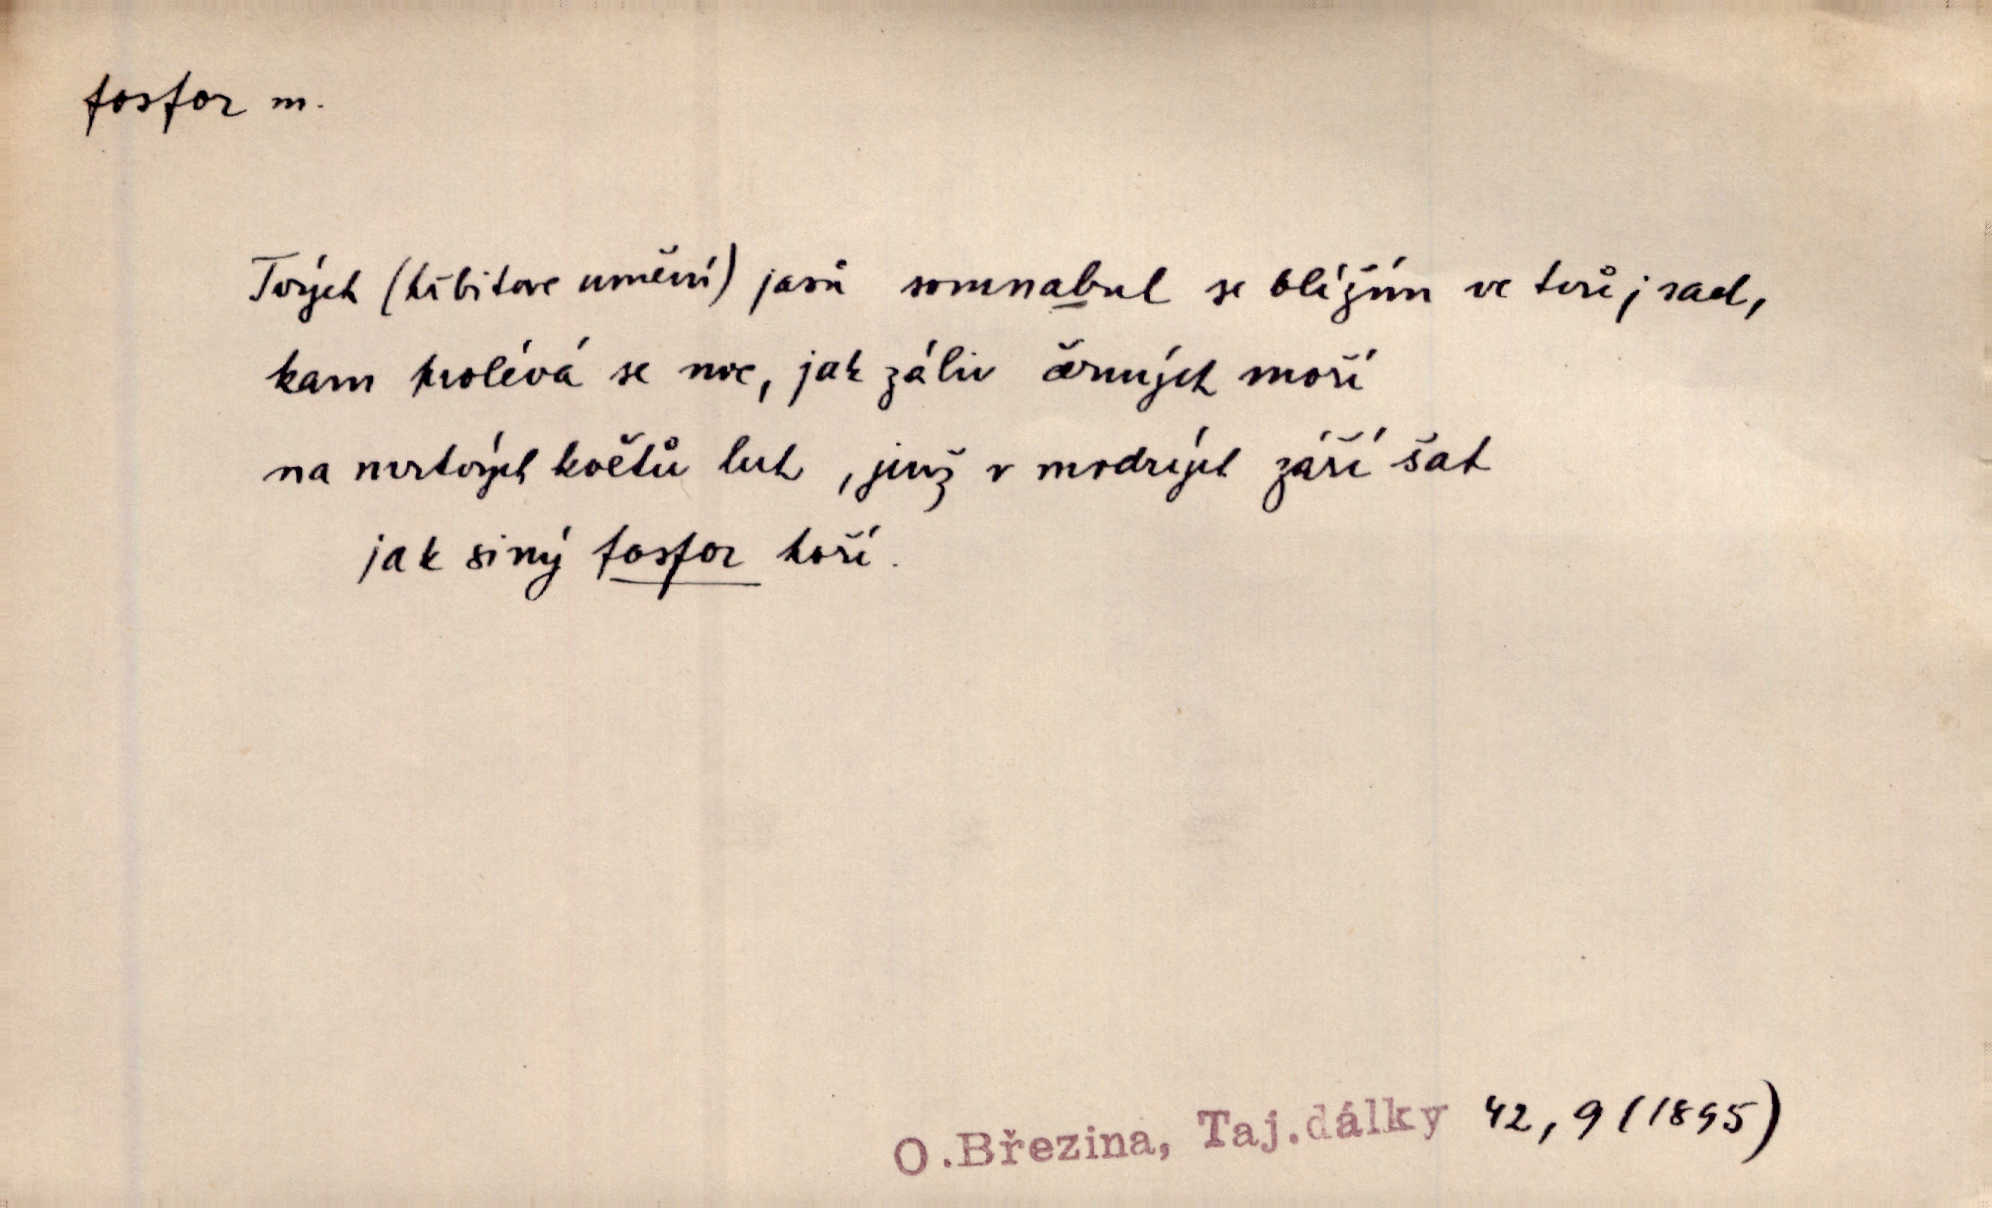 fosfor m.
Tvých (hřbitove umění) jasů somnabul se blížím ve tvůj sad,
kam provlévá se noc, jak záliv černých moří
na mrtvých květů luh, jenž v modrých září šat
jak siný fosfor hoří.
O.Březina, Taj.dálky 42, 9 (1895)